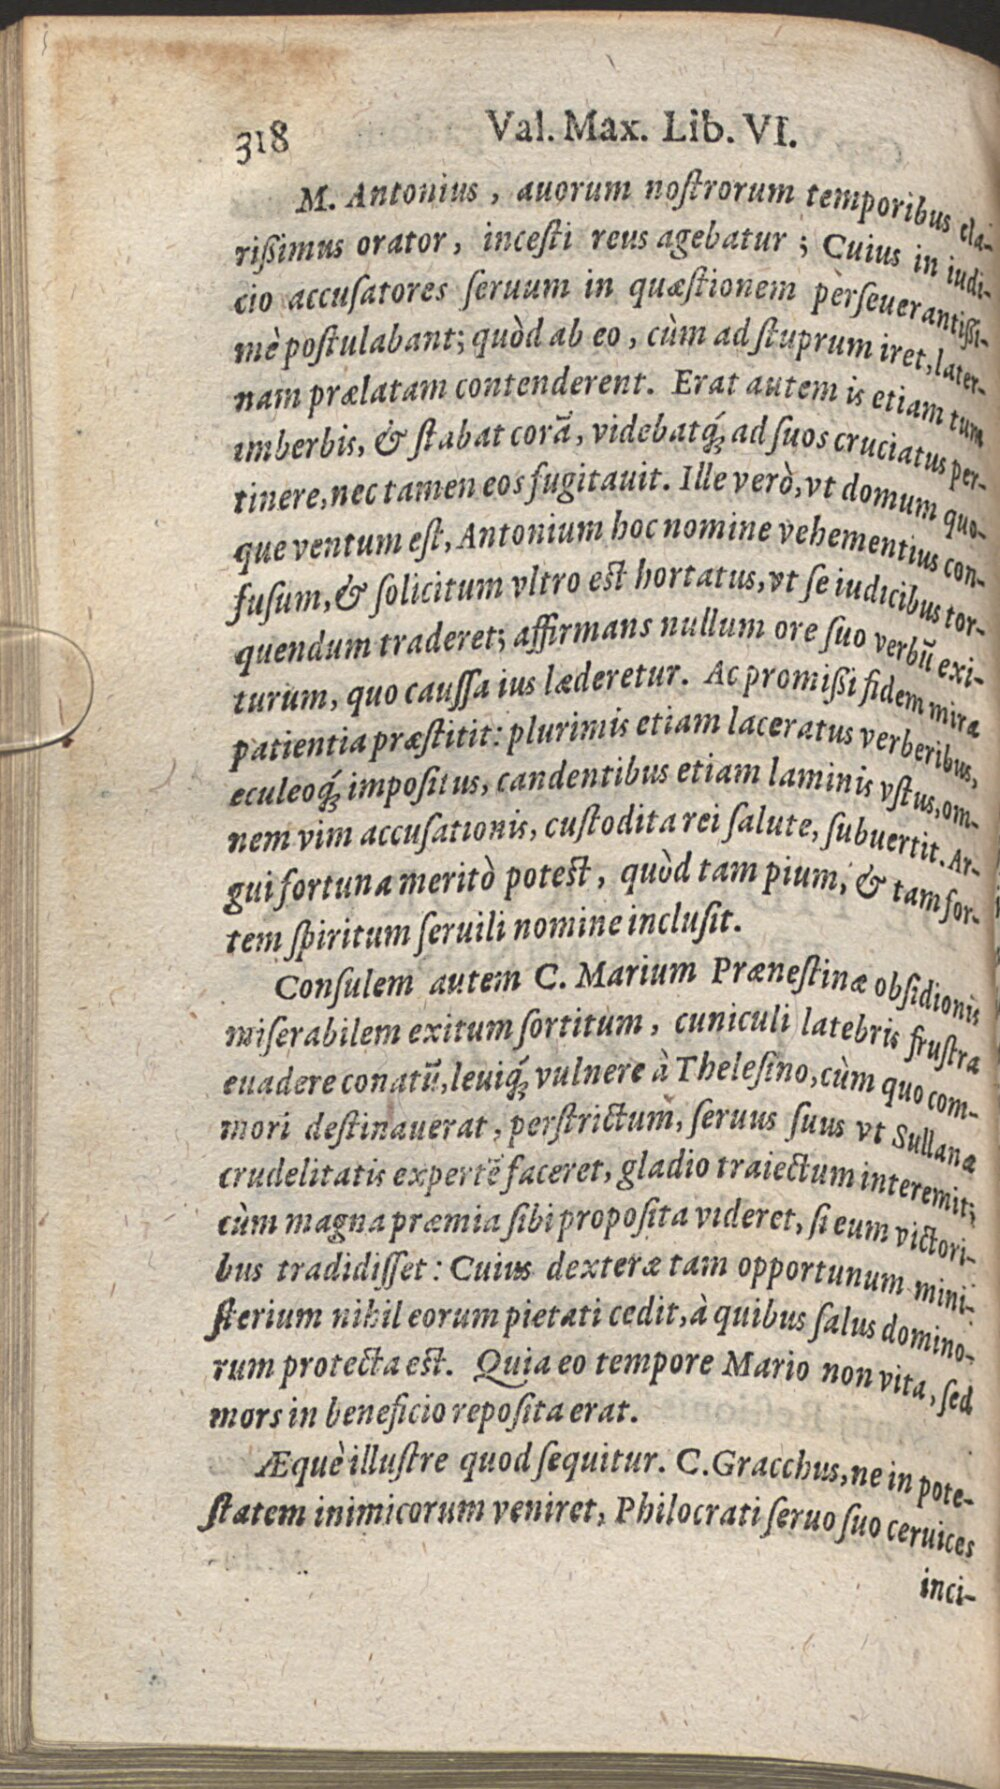 318 Val. Max. Lib. VI.
M. Antonius, auorum noſtrorum temporibus cla-
rißimus orator, inceſti reus agebatur; Cuius in iudi-
cio accuſatores ſeruum in quæſtionem perſeuerantißi-
mè poſtulabant; quòd ab eo, cùm ad ſtuprum iret, later-
nam prælatam contenderent. Erat autem is etiam tum
imberbis, & ſtabat corā, videbatq́; ad ſuos cruciatus per-
tinere, nec tamen eos fugitauit. Ille verò, vt domum quo-
que ventum eſt, Antonium hoc nomine vehementius con-
fuſum, & ſolicitum vltro eſt hortatus, vt ſe iudicibus tor-
quendum traderet; affirmans nullum ore ſuo verbū exi-
turum, quo cauſſa ius læderetur. Ac promißi fidem mira
patientia præſtitit: plurimis etiam laceratus verberibus,
eculeoq́; impoſitus, candentibus etiam laminis vſtus, om-
nem vim accuſationis, cuſtodita rei ſalute, ſubuertit. Ar-
gui fortuna meritò poteſt, quòd tam pium, & tam for-
tem ſpiritum ſeruili nomine incluſit.
Conſulem autem C. Marium Præneſtinæ obſidionis
miſerabilem exitum ſortitum, cuniculi latebris fruſtra
euadere conatū, leuiq́; vulnere à Theleſino, cùm quo com-
mori deſtinauerat, perſtrictum, ſeruus ſuus vt Sullanæ
crudelitatis expertē faceret, gladio traiectum interemit;
cùm magna præmia ſibi propoſita videret, ſi eum victori-
bus tradidiſſet: Cuius dexteræ tam opportunum mini-
ſterium nihil eorum pietati cedit, à quibus ſalus domino-
rum protecta eſt. Quia eo tempore Mario non vita, ſed
mors in beneficio repoſita erat.
Æquè illuſtre quod ſequitur. C. Gracchus, ne in pote-
ſtatem inimicorum veniret, Philocrati ſeruo ſuo ceruices
inci-